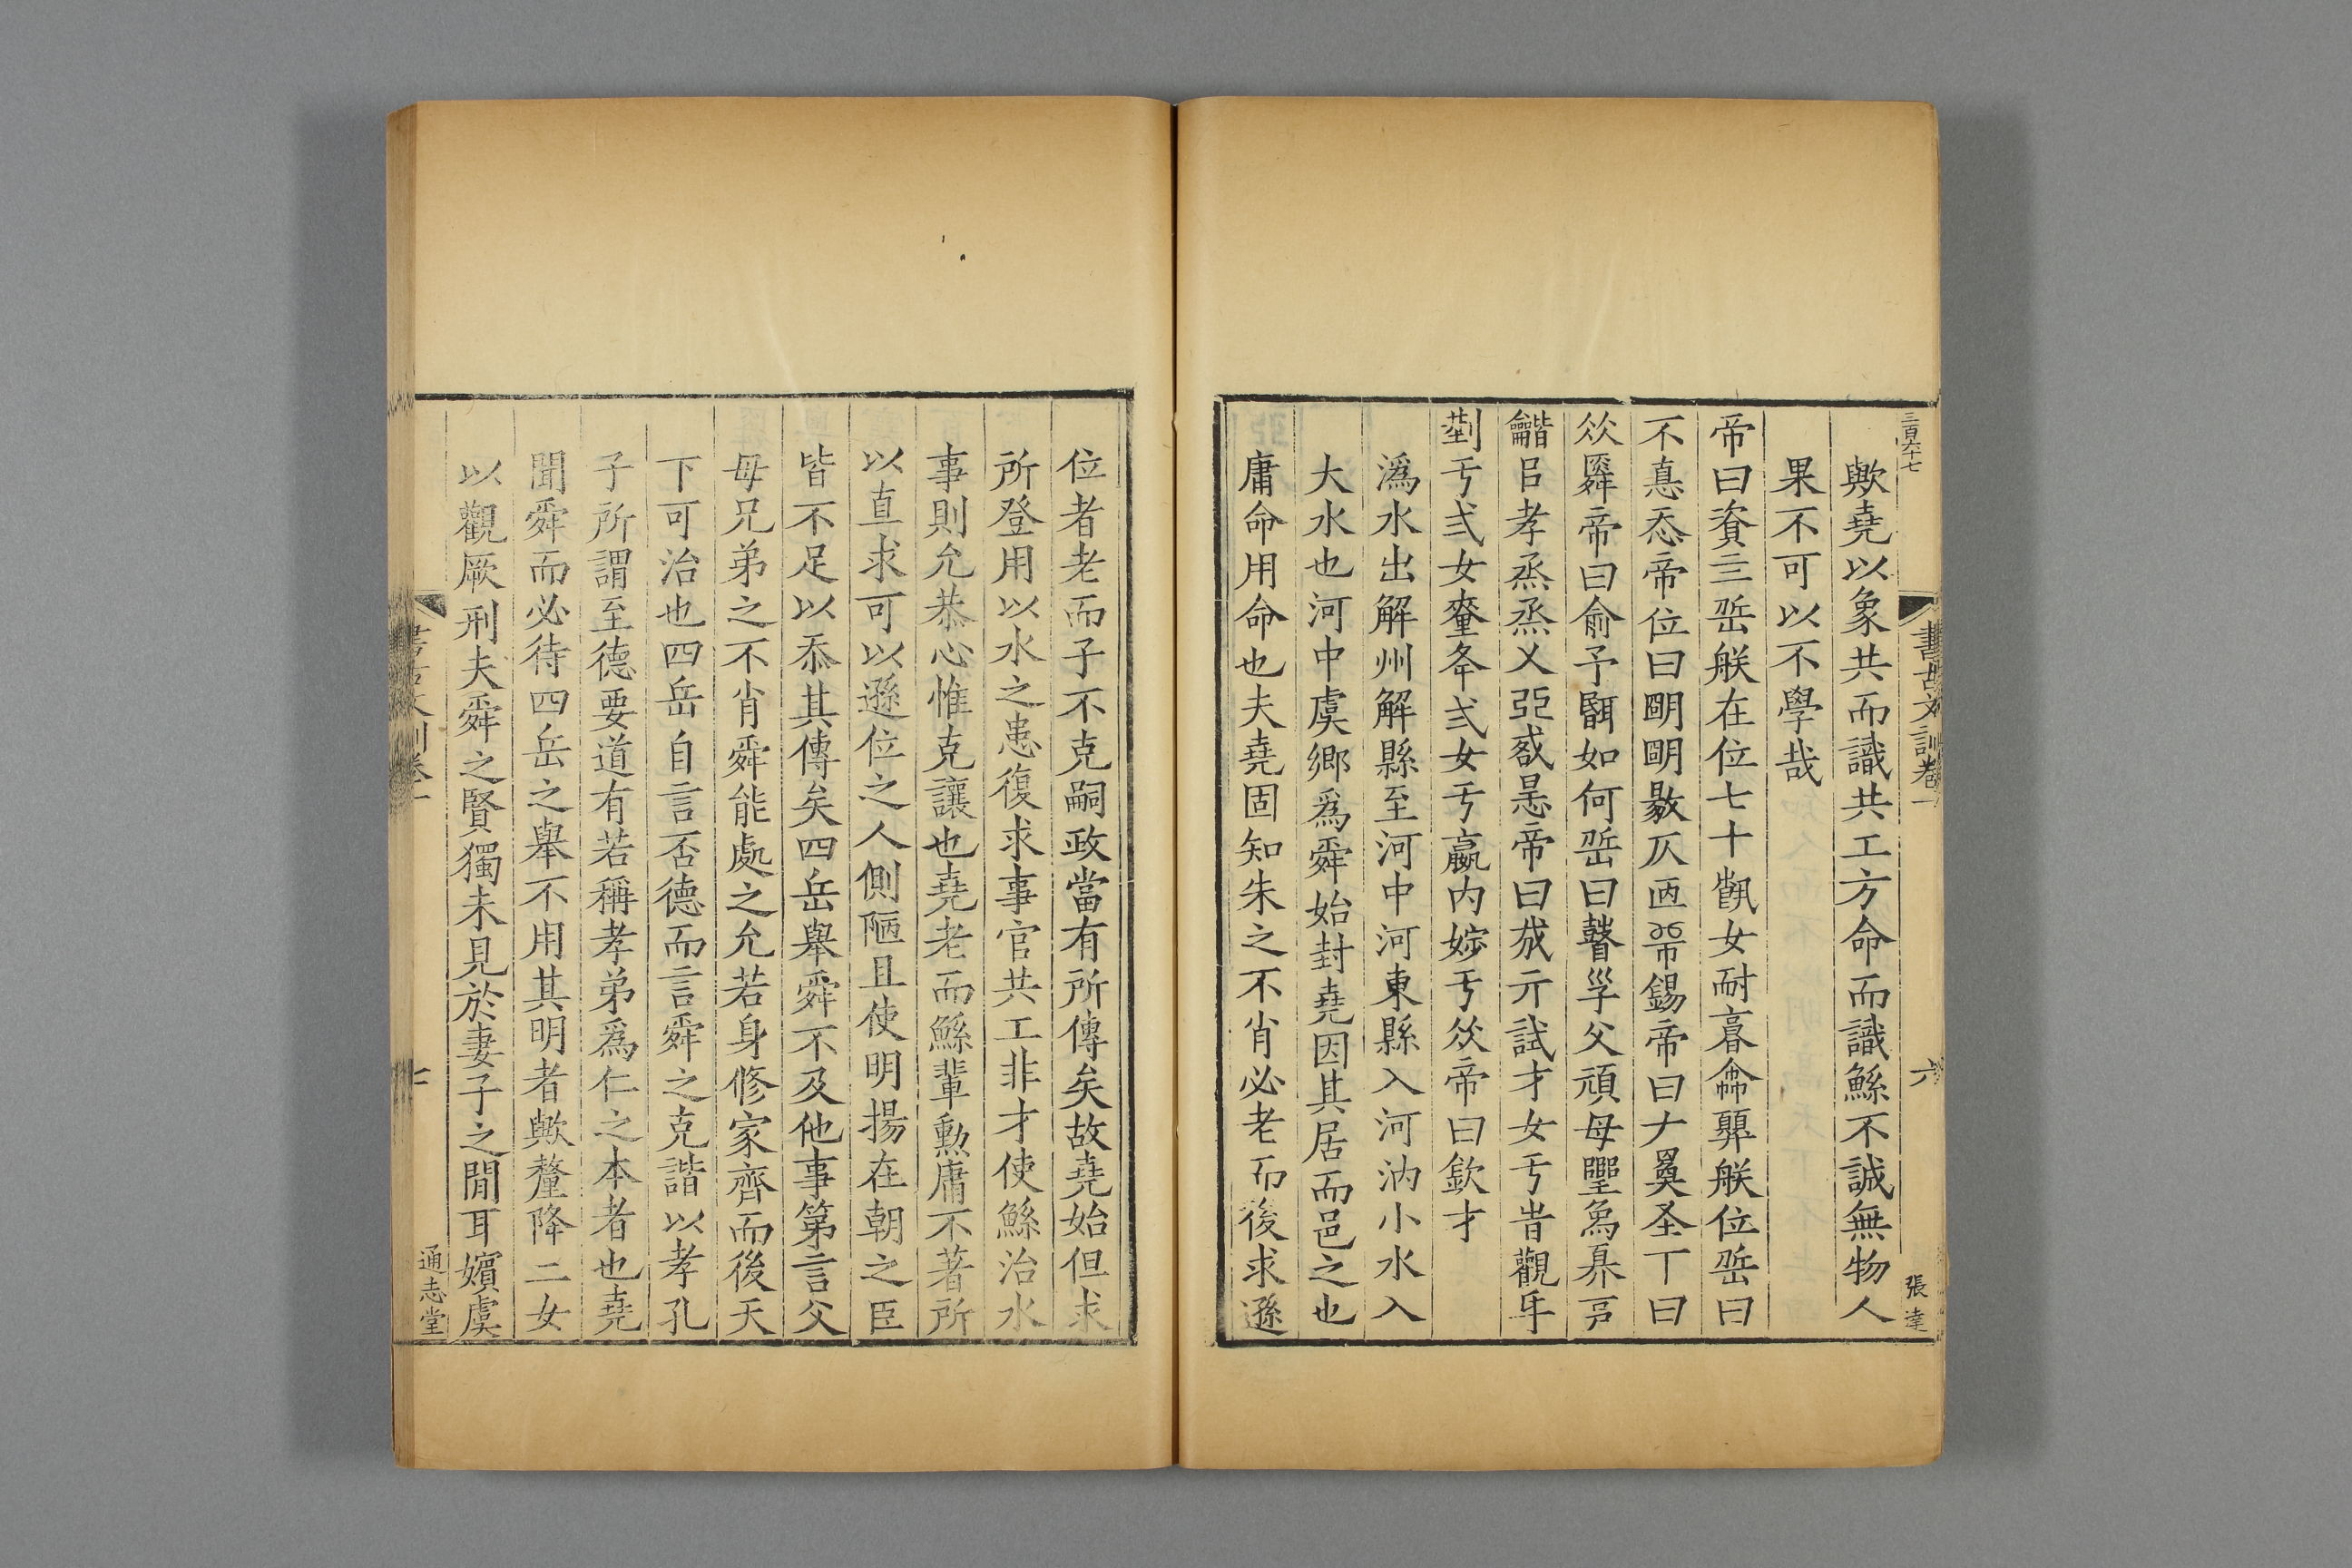 三百六十七
書古文訓卷一
六
張達
歟堯以象共而識共工方命而識鯀不誠無物人
果不可以不學哉
帝曰資三岳朕在位七十
女耐
朕位
曰
不悳忝帝位曰明明
仄
錫帝曰
圣丅曰
帝曰俞予
如何
曰瞽
父頑母
孝烝烝乂
帝曰
試才女亐旹觀
亐弍女
弍女亐
内
亐
帝曰欽才
潙水出解州解縣至河中河東縣入河汭小水入
大水也河中虞鄉爲舜始封堯因其居而邑之也
庸命用命也夫堯固知朱之不肖必老而後求遜
位者老而子不克嗣政當有所傳矣故堯始但求
所登用以水之患復求事官共工非才使鯀治水
事則允恭心惟克讓也堯老而鯀輩勲庸不著所
以直求可以遜位之人側陋且使明揚在朝之臣
皆不足以忝其傳矣四岳舉舜不及他事第言父
母兄弟之不肖舜能處之允若身修家齊而後天
下可治也四岳自言否德而言舜之克諧以孝孔
子所謂至德要道有若稱孝弟爲仁之本者也堯
聞舜而必待四岳之舉不用其明者歟釐降二女
以觀厥刑夫舜之賢獨未見於妻子之閒耳嬪虞
通志堂